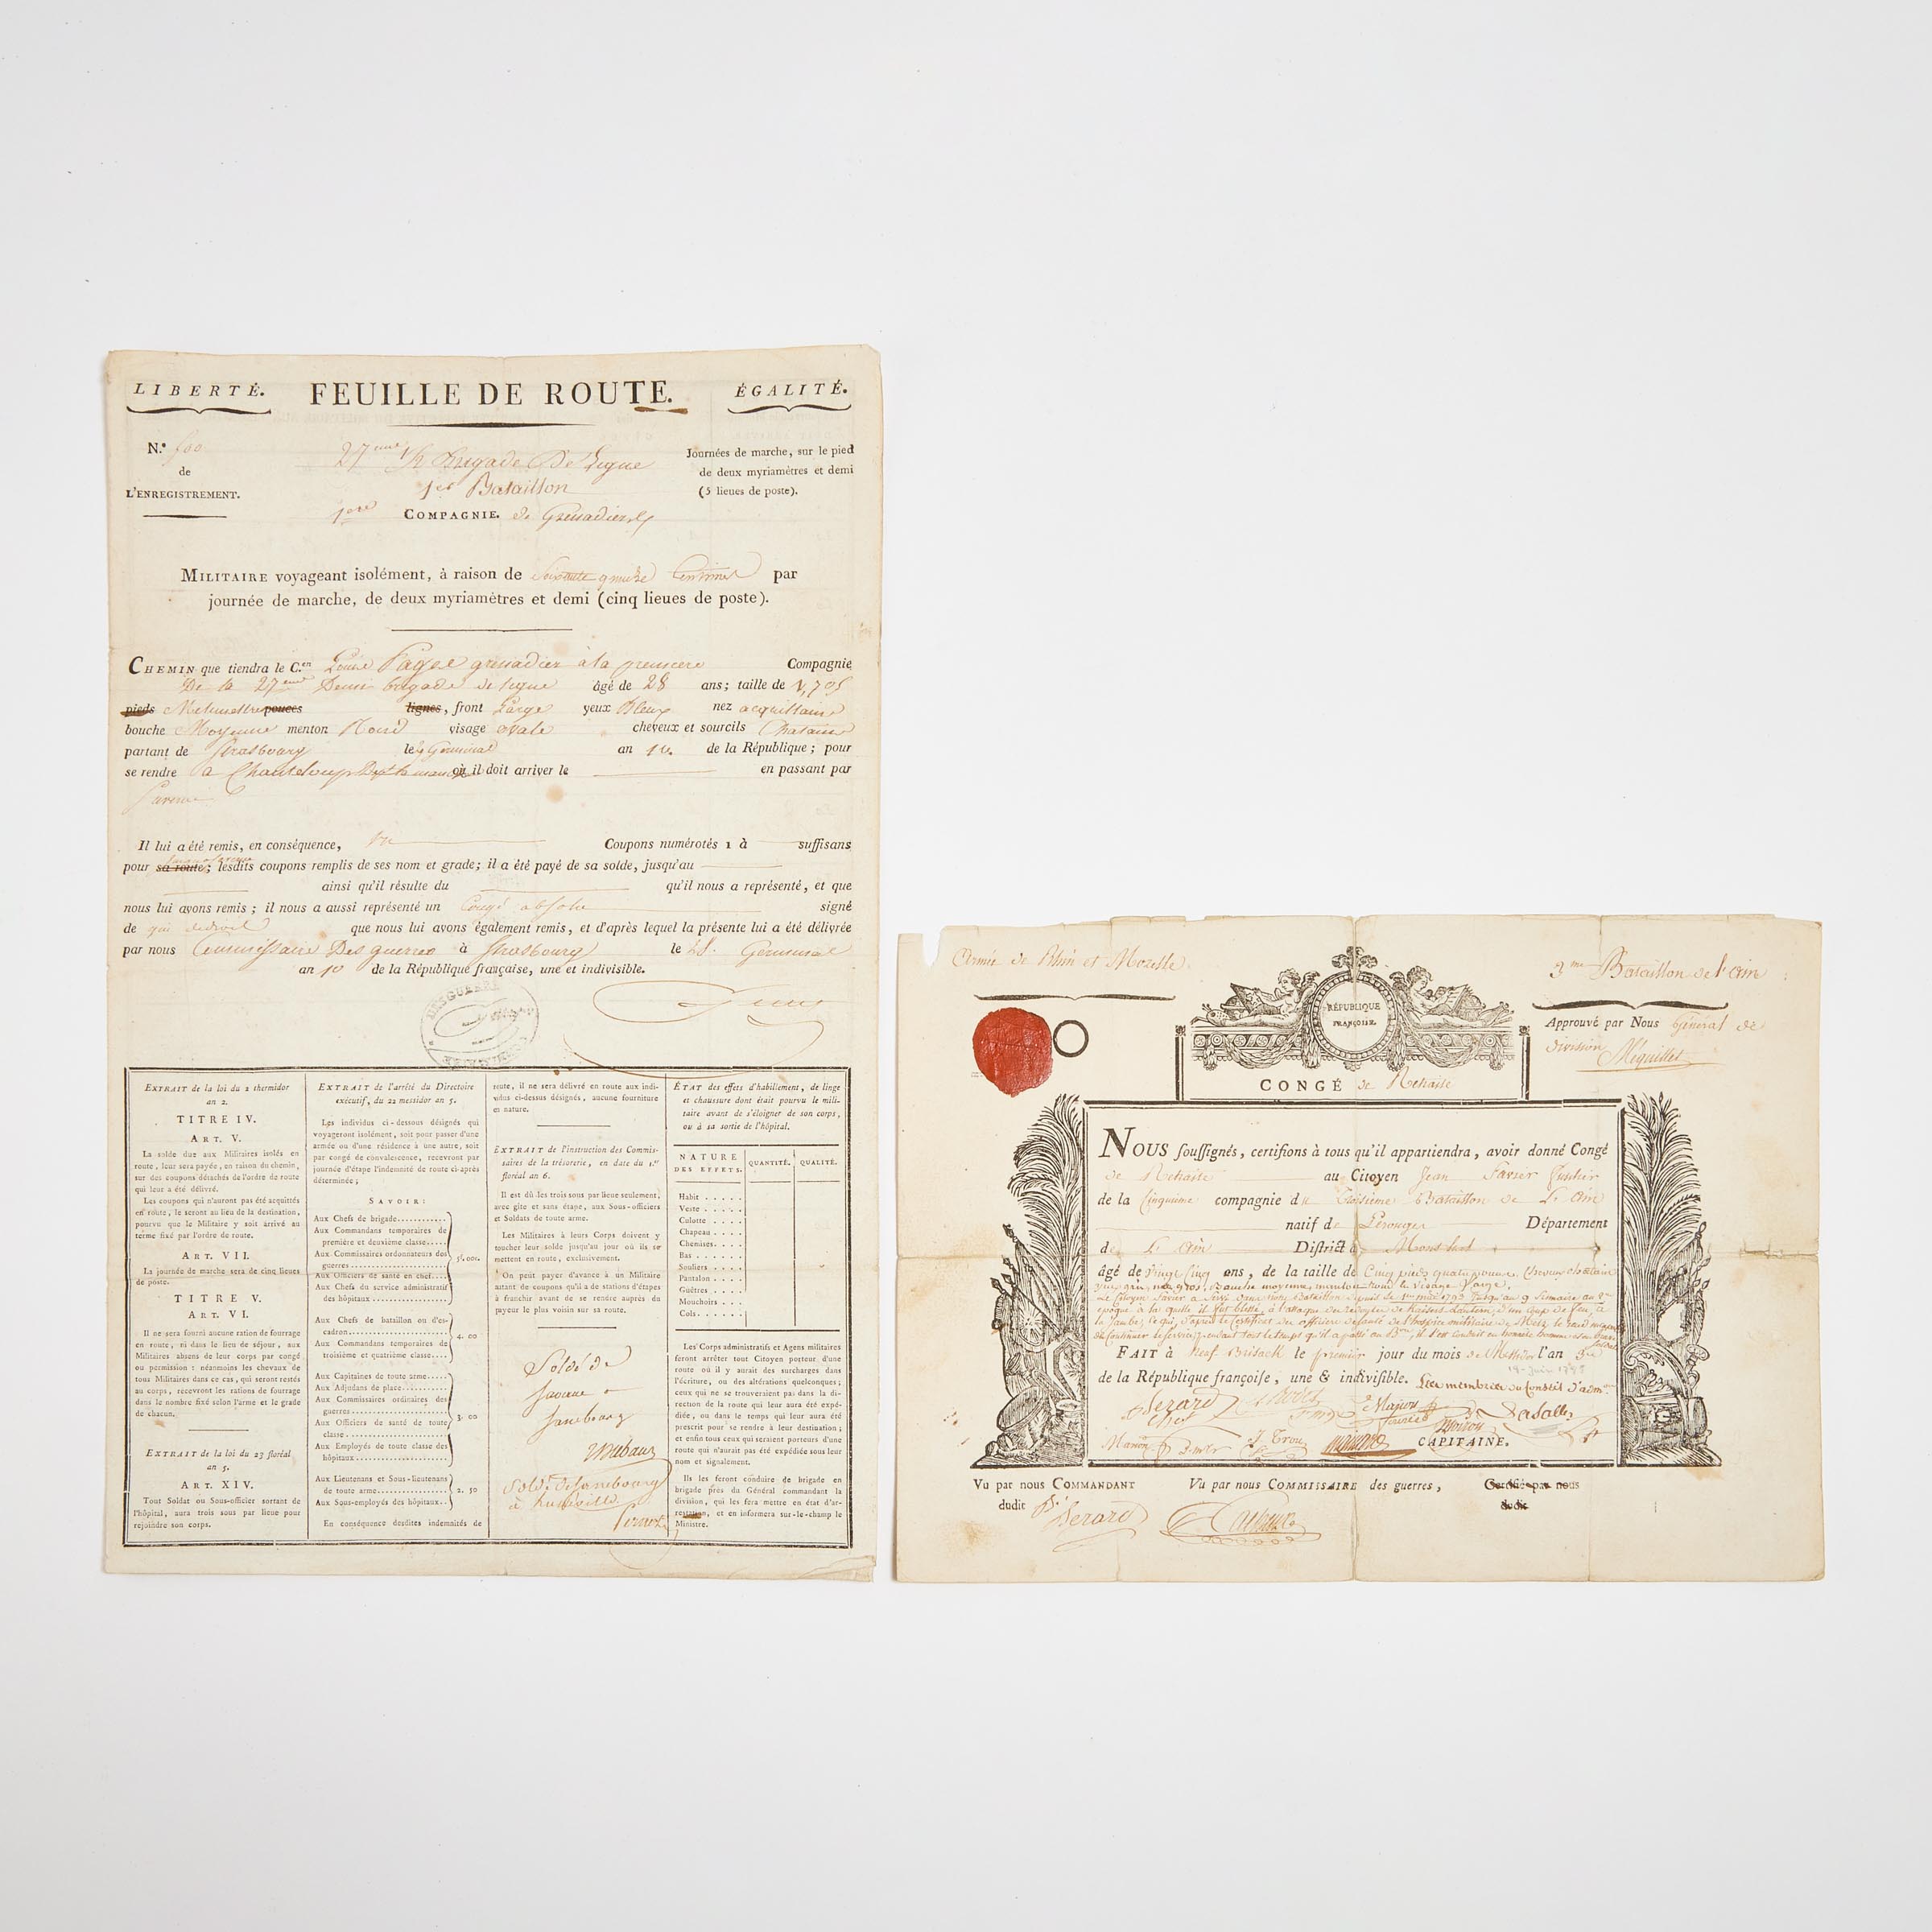 LIBERTÉ. FEUILLE DE ROUTE. ÉGALITÉ.
N.º
de
L'ENREGISTREMENT.
27eme Brigade De Ligne
1er Bataillon
1ere COMPAGNIE. de Grenadiers
Journées de marche, sur le pied
de deux myriamètres et demi
(5 lieues de poste).
MILITAIRE voyageant isolément, à raison de Centimes par
journée de marche, de deux myriamètres et demi (cinq lieues de poste).
CHEMIN que tiendra le C.en Louis Pagel grenadier à la premiere Compagnie
De la 27eme Demi brigade de Ligne âgé de 28 ans; taille de 1,705
pieds pouces lignes, front Large yeux Bleux nez acquillain
bouche Moyenne menton Rond visage ovale cheveux et sourcils Chatains
partant de Strasbourg le Germinal an 10. de la République; pour
se rendre a Chanteloup où il doit arriver le en passant par
Saverne
Il lui a été remis, en conséquence, Coupons numérotés 1 à suffisans
pour sa route; lesdits coupons remplis de ses nom et grade; il a été payé de sa solde, jusqu'au
ainsi qu'il résulte du qu'il nous a représenté, et que
nous lui avons remis; il nous a aussi représenté un Congé absolu signé
de qui dedroit que nous lui avons également remis, et d'après lequel la présente lui a été délivrée
par nous Commissaire Des guerres à Strasbourg le Germinal
an 10 de la République française, une et indivisible.
EXTRAIT de la loi du 2 thermidor
an 2.
TITRE IV.
ART. V.
La solde due aux Militaires isolés en
route, leur sera payée, en raison du chemin,
sur des coupons détachés de l'ordre de route
qui leur a été délivré.
Les coupons qui n'auront pas été acquittés
en route, le seront au lieu de la destination,
pourvu que le Militaire y soit arrivé au
terme fixé par l'ordre de route.
ART. VII.
La journée de marche sera de cinq lieues
de poste.
TITRE V.
ART. VI.
Il ne sera fourni aucune ration de fourrage
en route, ni dans le lieu de séjour, aux
Militaires absens de leur corps par congé
ou permission : néanmoins les chevaux de
tous Militaires dans ce cas, qui seront restés
au corps, recevront les rations de fourrage
dans le nombre fixé selon l'arme et le grade
de chacun.
EXTRAIT de la loi du 23 floréal
an 5.
ART. XIV.
Tout Soldat ou Sous-officier sortant de
l'hôpital, aura trois sous par lieue pour
rejoindre son corps.
EXTRAIT de l'arrêté du Directoire
exécutif, du 22 messidor an 5.
Les individus ci-dessous désignés qui
voyageront isolément, soit pour passer d'une
armée ou d'une résidence à une autre, soit
par congé de convalescence, recevront par
journée d'étape l'indemnité de route ci-après
déterminée;
SAVOIR:
Aux Chefs de brigade
Aux Commandans temporaires de
première et deuxième classe
Aux Commissaires ordonnateurs des
guerres
Aux Officiers de santé en chef
Aux Chefs du service administratif
des hôpitaux
5f. 00c.
Aux Chefs de bataillon ou d'es-
cadron
Aux Commandans temporaires de
troisième et quatrième classe
4. 00
Aux Capitaines de toute arme
Aux Adjudans de place
Aux Commissaires ordinaires des
guerres
Aux Officiers de santé de toute
classe
Aux Employés de toute classe des
hôpitaux
3. 00
Aux Lieutenans et Sous-lieutenans
de toute arme
Aux Sous-employés des hôpitaux
2. 50
En conséquence desdites indemnités de
route, il ne sera délivré en route aux indi-
vidus ci-dessus désignés, aucune fourniture
en nature.
EXTRAIT de l'instruction des Commis-
saires de la trésorerie, en date du 1.er
floréal an 6.
Il est dû les trois sous par lieue seulement,
avec gîte et sans étape, aux Sous-officiers
et Soldats de toute arme.
Les Militaires à leurs Corps doivent y
toucher leur solde jusqu'au jour où ils se
mettent en route, exclusivement.
On peut payer d'avance à un Militaire
autant de coupons qu'il a de stations d'étapes
à franchir avant de se rendre auprès du
payeur le plus voisin sur sa route.
Soldé de
Saverne a
Sarrebourg
Soldé de Sarrebourg
à Lunéville
ÉTAT des effets d'habillement, de linge
et chaussure dont était pourvu le mili-
taire avant de s'éloigner de son corps,
ou à sa sortie de l'hôpital.
NATURE DES EFFETS. QUANTITÉ. QUALITÉ.
Habit
Veste
Culotte
Chapeau
Chemises
Bas
Souliers
Pantalon
Guêtres
Mouchoirs
Cols
Les Corps administratifs et Agens militaires
feront arrêter tout Citoyen porteur d'une
route où il y aurait des surcharges dans
l'écriture, ou des altérations quelconques;
ceux qui ne se trouveraient pas dans la di-
rection de la route qui leur aura été expé-
diée, ou dans le temps qui leur aura été
prescrit pour se rendre à leur destination;
et enfin tous ceux qui seraient porteurs d'une
route qui n'aurait pas été expédiée sous leur
nom et signalement.
Ils les feront conduire de brigade en
brigade près du Général commandant la
division, qui les fera mettre en état d'ar-
restation, et en informera sur-le-champ le
Ministre.
Armée de Rhin et Mozelle
3me Bataillon de l'Ain
RÉPUBLIQUE
FRANÇOISE
Approuvé par Nous Général de
Division
CONGÉ de Retraite
NOUS souſſignés, certifions à tous qu'il appartiendra, avoir donné Congé
de Retraite au Citoyen Jean Favier Fusilier
de la Cinquieme compagnie du Troisieme Bataillon de L'Ain
natif de Perouges Département
de L'Ain District de Montluel
âgé de Vingt Cinq ans, de la taille de Cinq pieds quatre pouces. Cheveux chatain
FAIT à Neuf Brisack le premier jour du mois de Messidor l'an 3e
19 Juin 1795
de la République françoiſe, une & indiviſible. Les membres du Conseil d'adm.on
CAPITAINE.
Vu par nous COMMANDANT
dudit
Vu par nous COMMISSAIRE des guerres,
Certifié par nous
dudit